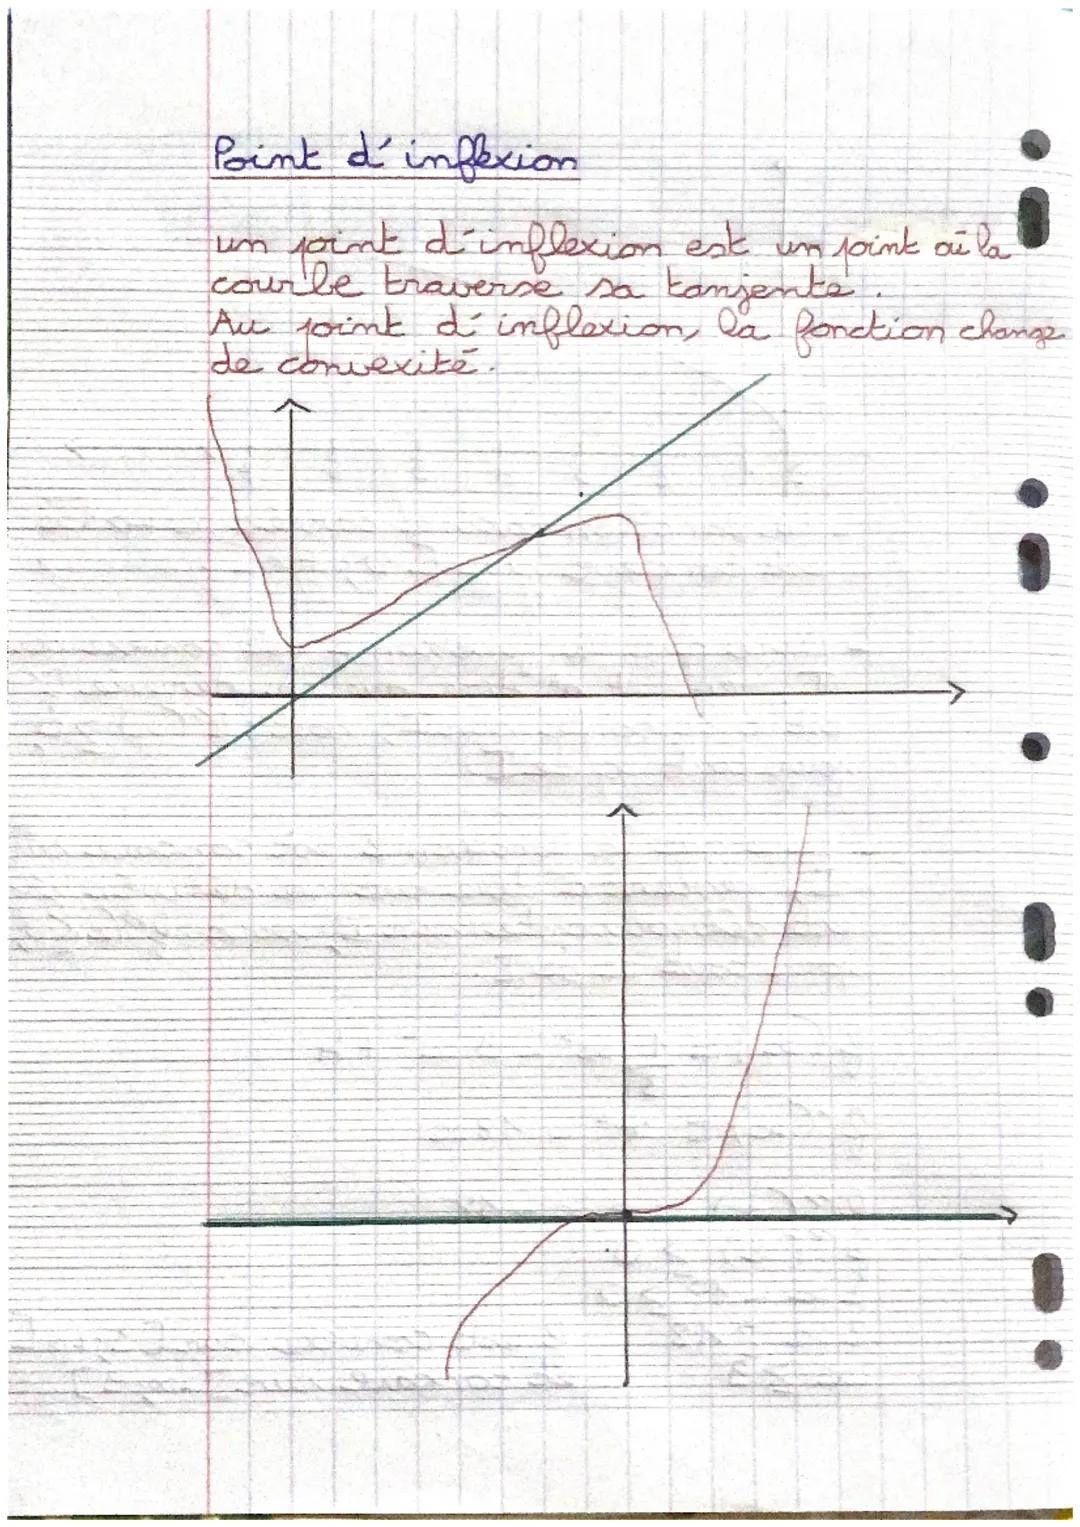 Point d'inflexion
un point d'inflexion est un point où la
courbe traverse sa tanjente.
Au point d'inflexion, la fonction change
de convexité.